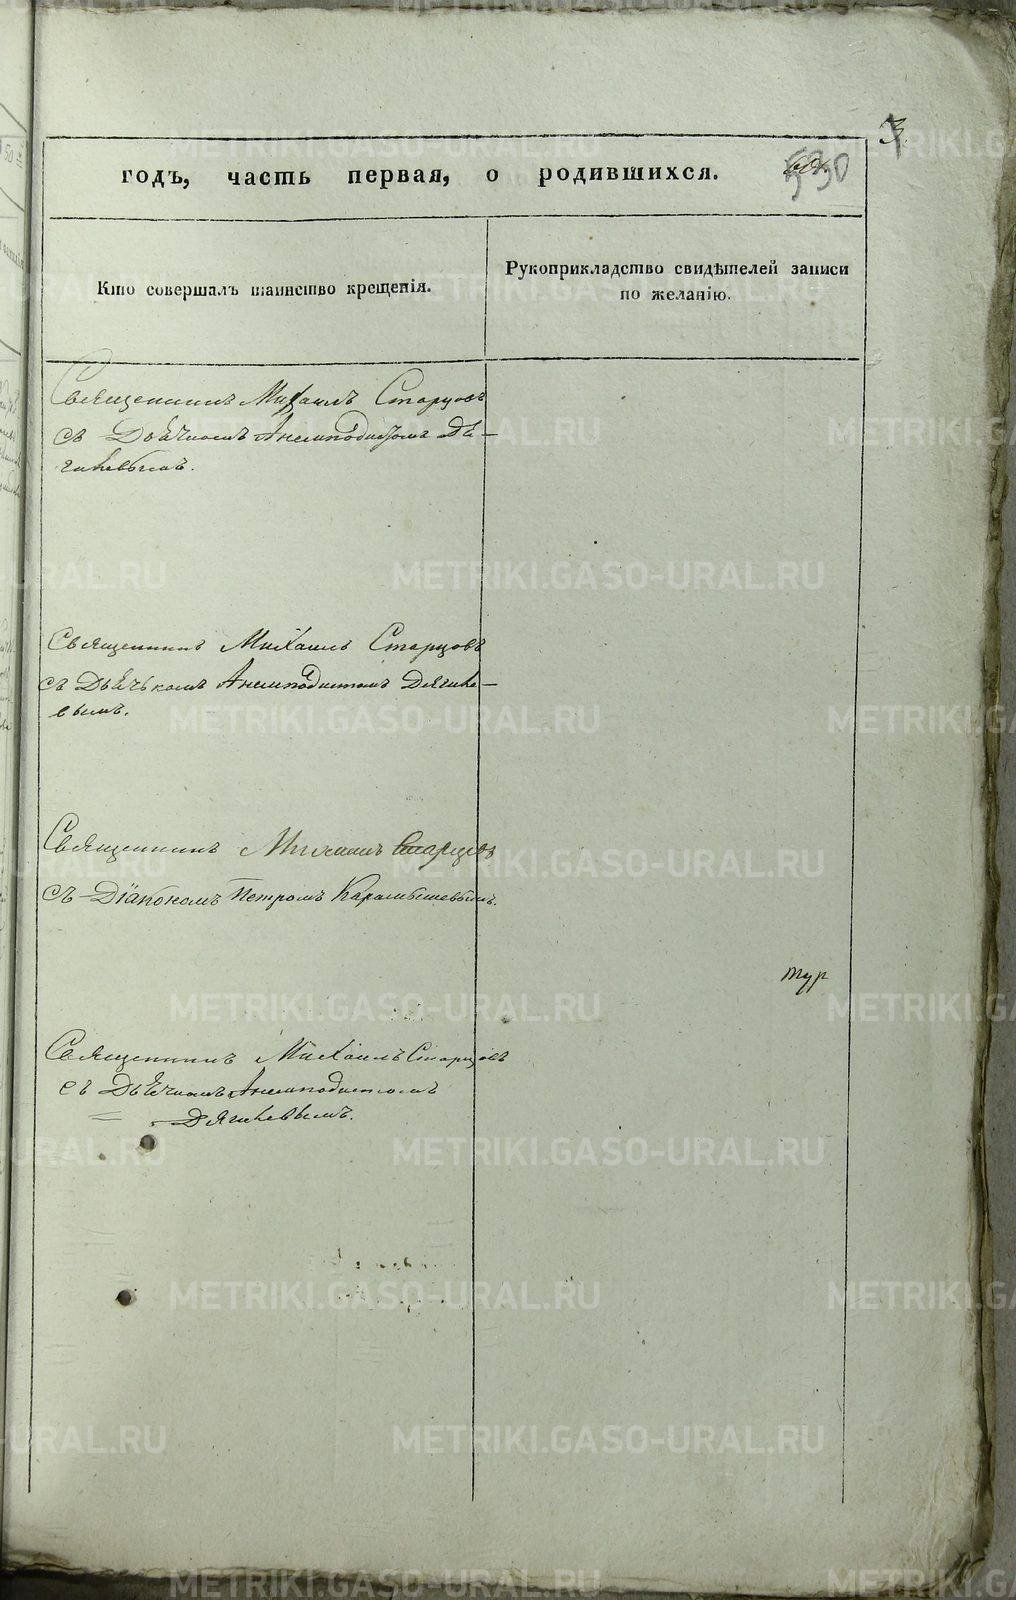 3
годъ, часть первая, о родившихся.
530
Кто совершалъ таинство крещенія.
Рукоприкладство свидѣтелей записи
по желанію.
Священникъ Михаилъ Старцовъ
съ Дьячкомъ Анемподистомъ Дя-
гилевымъ.
Священникъ Михаилъ Старцовъ
съ Дьячькомъ Анемподистомъ Дягиле-
вымъ.
Священникъ Михаилъ Старцовъ
съ Діакономъ Петромъ Карамышевымъ.
тур
Священникъ Михаилъ Старцовъ
съ Дьячкомъ Анемподистомъ
Дягилевымъ.
METRIKI.GASO-URAL.RU